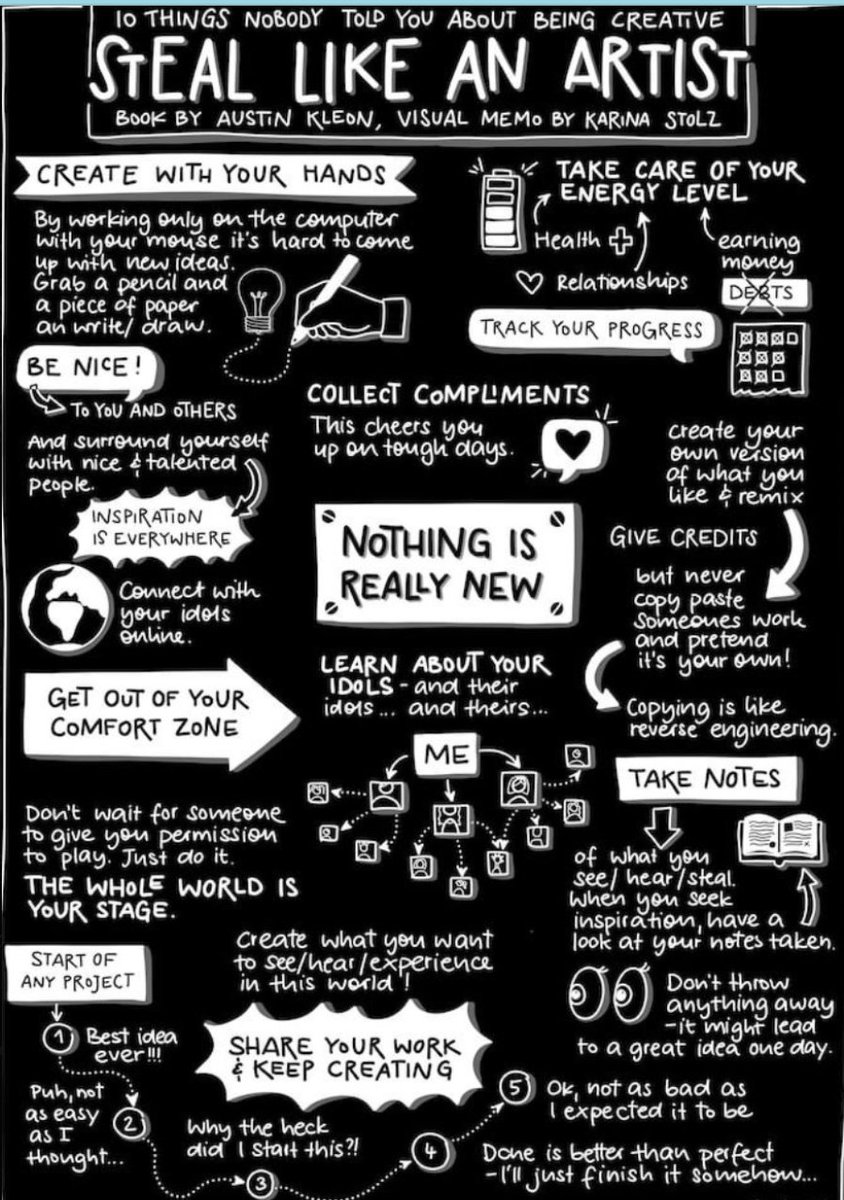 10 THINGS NOBODY TOLD YOU ABOUT BEING CREATIVE
STEAL LIKE AN ARTIST
BOOK BY AUSTIN KLEON, VISUAL MEMO BY KARINA STOLZ
CREATE WITH YOUR HANDS
By working only on the computer
with your mouse it's hard to come
up with new ideas.
Grab a pencil and
a piece of paper
an write/ draw.
TAKE CARE OF YOUR
ENERGY LEVEL
Health
Relationships
earning
money
DEBTS
TRACK YOUR PROGRESS
BE NICE!
TO YOU AND OTHERS
And surround yourself
with nice & talented
people.
COLLECT COMPLIMENTS
This cheers you
up on tough days.
create your
own version
of what you
like & remix
INSPIRATION
IS EVERYWHERE
Connect with
your idols
online.
NOTHING IS
REALLY NEW
GIVE CREDITS
but never
copy paste
someones work
and pretend
it's your own!
Copying is like
reverse engineering.
GET OUT OF YOUR
COMFORT ZONE
LEARN ABOUT YOUR
IDOLS - and their
idols... and theirs...
ME
TAKE NOTES
of what you
see/ hear/steal.
When you seek
inspiration, have a
look at your notes taken.
Don't wait for someone
to give you permission
to play. Just do it.
THE WHOLE WORLD IS
YOUR STAGE.
Create what you want
to see/hear/experience
in this world!
Don't throw
anything away
-it might lead
to a great idea one day.
START OF
ANY PROJECT
SHARE YOUR WORK
& KEEP CREATING
1
Best idea
ever!!!
Puh, not
as easy
as I
thought...
2
Why the heck
did I start this?!
3
4
Done is better than perfect
-I'll just finish it somehow...
5
Ok, not as bad as
I expected it to be